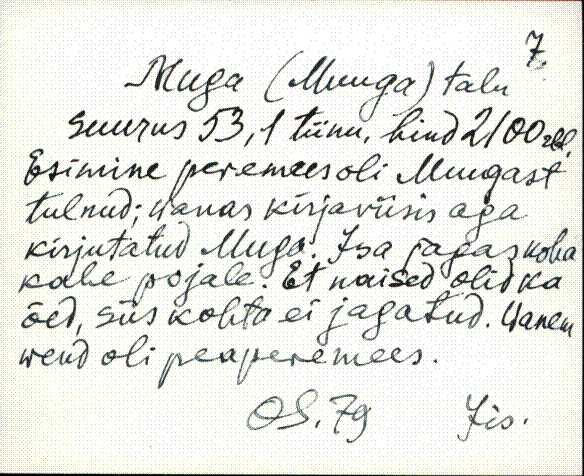 7.
Muga (Muuga) talu
suurus 53,1 tiinu, hind 2100 rbl.
Esimine peremees oli Muugast
tulnud; wanas kirjaviisis aga
kirjutatud Muga. Isa jagas koha
kahe pojale. Et naised olid ka
õed, siis kohta ei jagatud. Wanem
wend oli peaperemees.
OS. 79 Jis.